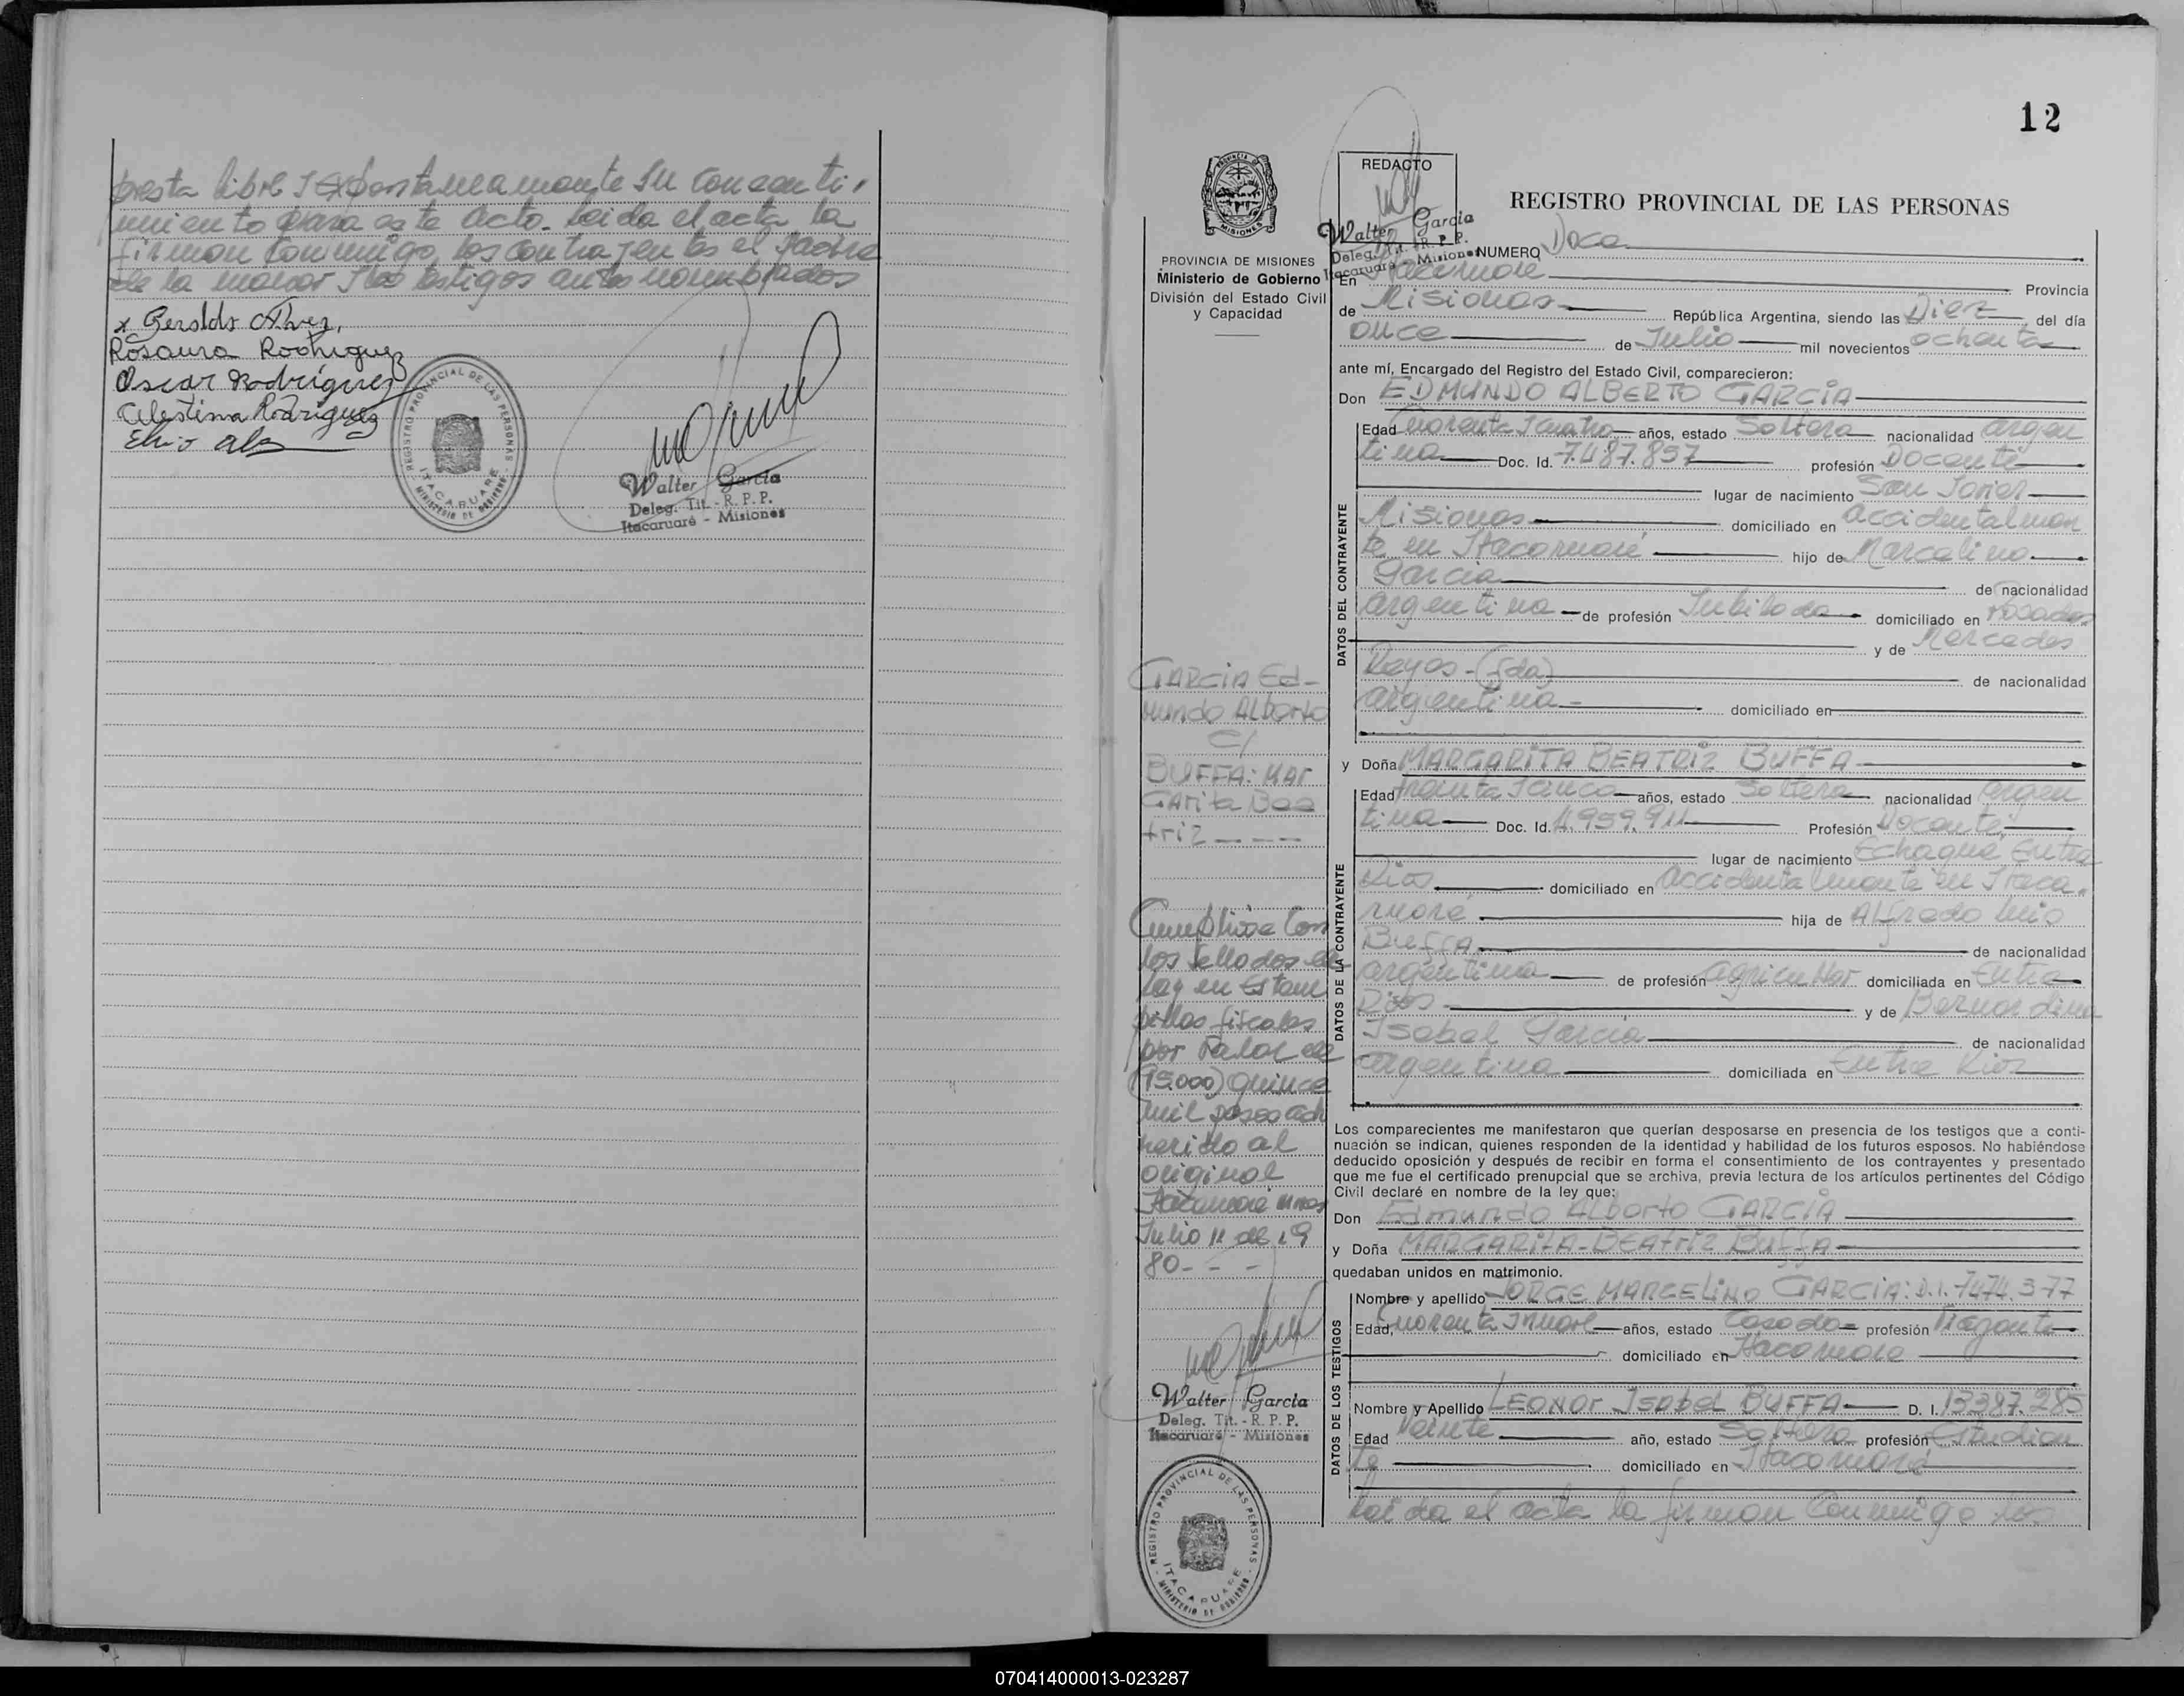 presta libre y expontaneamente su concenti-
miento para este acto. leida el acta la
firman conmigo los contrayentes el padre
de la menor y los testigos antes nombrados
x Geraldo Alvez,
Rosaura Rodriguez
Oscar Rodríguez
Celestina Rodriguez
REGISTRO PROVINCIAL DE LAS PERSONAS
ITACARUARE
MINISTERIO DE GOBIERNO
Walter García
Deleg. Tit. - R. P. P.
Itacaruaré - Misiones
12
PROVINCIA DE MISIONES
Ministerio de Gobierno
División del Estado Civil
y Capacidad
REDACTO
Walter García
Deleg. Tit. R. P. P.
Itacaruaré - Misiones
REGISTRO PROVINCIAL DE LAS PERSONAS
NUMERO Doce
En Itacaruaré Provincia
de Misiones República Argentina, siendo las Diez del día
once de Julio mil novecientos ochenta
ante mí, Encargado del Registro del Estado Civil, comparecieron:
Don EDMUNDO ALBERTO GARCIA
DATOS DEL CONTRAYENTE
Edad cuarenta y cuatro años, estado Soltero nacionalidad argen
tina Doc. Id. 7.487.857 profesión Docente
lugar de nacimiento San Javier
Misiones domiciliado en accidentalmen
te en Itacaruaré hijo de Marcelino
García de nacionalidad
argentina de profesión Jubilado domiciliado en Posadas
y de Mercedes
Reyes - (fda) de nacionalidad
argentina - domiciliado en
y Doña MARGARITA BEATRIZ BUFFA
DATOS DE LA CONTRAYENTE
Edad treinta y cinco años, estado Soltera nacionalidad argen
tina Doc. Id. 4.959.911 Profesión Docente
lugar de nacimiento Echague Entre
Rios domiciliado en accidentalmente en Itaca-
ruaré hija de Alfredo Luis
Buffa de nacionalidad
argentina de profesión agricultor domiciliada en Entre
Rios y de Bernardina
Isabel Garcia de nacionalidad
argentina domiciliada en Entre Rios
Los comparecientes me manifestaron que querían desposarse en presencia de los testigos que a conti-
nuación se indican, quienes responden de la identidad y habilidad de los futuros esposos. No habiéndose
deducido oposición y después de recibir en forma el consentimiento de los contrayentes y presentado
que me fue el certificado prenupcial que se archiva, previa lectura de los artículos pertinentes del Código
Civil declaré en nombre de la ley que:
Don Edmundo Alberto GARCIA
y Doña MARGARITA - BEAtriz Buffa
quedaban unidos en matrimonio.
DATOS DE LOS TESTIGOS
Nombre y apellido JORGE MARCELINO GARCIA: D.I. 7474.377
Edad, cuarenta y nueve años, estado Casado profesión
domiciliado en Itacaruaré
Nombre y Apellido LEONOr Isabel BUFFA D. I. 13387.285
Edad Veinte año, estado Soltera profesión Estudian
te domiciliado en Itacaruaré
leida el acta la firman conmigo los
GARCIA Ed-
mundo Alberto
C/
BUFFA: MAr
GArita Bea
triz - - - -
Cumplise con
los sellados de
ley en Estam
pillas fiscales
por valor de
(15.000) quince
mil pesos adh
herido al
original
Itacaruaré Mnes
Julio 11 de 19
80 - - -
Walter García
Deleg. Tit. - R. P. P.
Itacaruaré - Misiones
REGISTRO PROVINCIAL DE LAS PERSONAS
ITACARUARE
MINISTERIO DE GOBIERNO
070414000013-023287